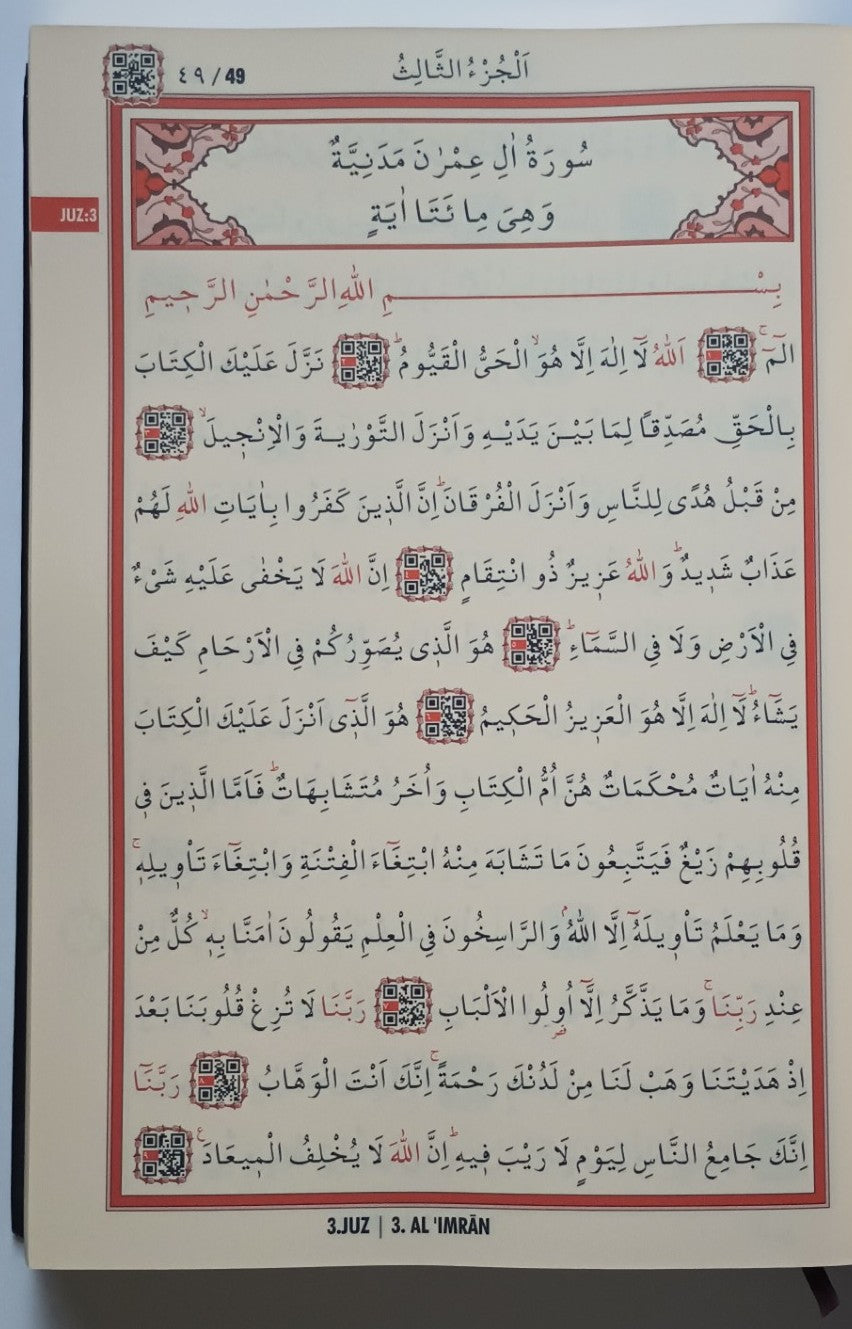 ٤٩ / 49
اَلْجُزْءُ الثَّالِثُ
سُورَةُ اٰلِ عِمْرٰنَ مَدَنِيَّةٌ
وَهِىَ مِائَتَا اٰيَةٍ
JUZ:3
بِسْمِ اللّٰهِ الرَّحْمٰنِ الرَّحِيمِ
الٓمٓۚ اَللّٰهُ لَٓا اِلٰهَ اِلَّا هُوَۙ الْحَىُّ الْقَيُّومُۜ نَزَّلَ عَلَيْكَ الْكِتَابَ
بِالْحَقِّ مُصَدِّقاً لِمَا بَيْنَ يَدَيْهِ وَاَنْزَلَ التَّوْرٰيةَ وَالْاِنْجِيلَۙ
مِنْ قَبْلُ هُدًى لِلنَّاسِ وَاَنْزَلَ الْفُرْقَانَۜ اِنَّ الَّذِينَ كَفَرُوا بِاٰيَاتِ اللّٰهِ لَهُمْ
عَذَابٌ شَدِيدٌۜ وَاللّٰهُ عَزِيزٌ ذُو انْتِقَامٍ اِنَّ اللّٰهَ لَا يَخْفٰى عَلَيْهِ شَىْءٌ
فِى الْاَرْضِ وَلَا فِى السَّمَٓاءِۜ هُوَ الَّذِى يُصَوِّرُكُمْ فِى الْاَرْحَامِ كَيْفَ
يَشَٓاءُۜ لَٓا اِلٰهَ اِلَّا هُوَ الْعَزِيزُ الْحَكِيمُ هُوَ الَّذِٓى اَنْزَلَ عَلَيْكَ الْكِتَابَ
مِنْهُ اٰيَاتٌ مُحْكَمَاتٌ هُنَّ اُمُّ الْكِتَابِ وَاُخَرُ مُتَشَابِهَاتٌۜ فَاَمَّا الَّذِينَ فِى
قُلُوبِهِمْ زَيْغٌ فَيَتَّبِعُونَ مَا تَشَابَهَ مِنْهُ ابْتِغَٓاءَ الْفِتْنَةِ وَابْتِغَٓاءَ تَأْوِيلِهِۚ
وَمَا يَعْلَمُ تَأْوِيلَهُٓ اِلَّا اللّٰهُۢ وَالرَّاسِخُونَ فِى الْعِلْمِ يَقُولُونَ اٰمَنَّا بِهِۙ كُلٌّ مِنْ
عِنْدِ رَبِّنَاۚ وَمَا يَذَّكَّرُ اِلَّٓا اُو۬لُوا الْاَلْبَابِ رَبَّنَا لَا تُزِغْ قُلُوبَنَا بَعْدَ
اِذْ هَدَيْتَنَا وَهَبْ لَنَا مِنْ لَدُنْكَ رَحْمَةًۚ اِنَّكَ اَنْتَ الْوَهَّابُ رَبَّنَٓا
اِنَّكَ جَامِعُ النَّاسِ لِيَوْمٍ لَا رَيْبَ فِيهِۜ اِنَّ اللّٰهَ لَا يُخْلِفُ الْمِيعَادَ۟
3.JUZ | 3. AL 'IMRĀN